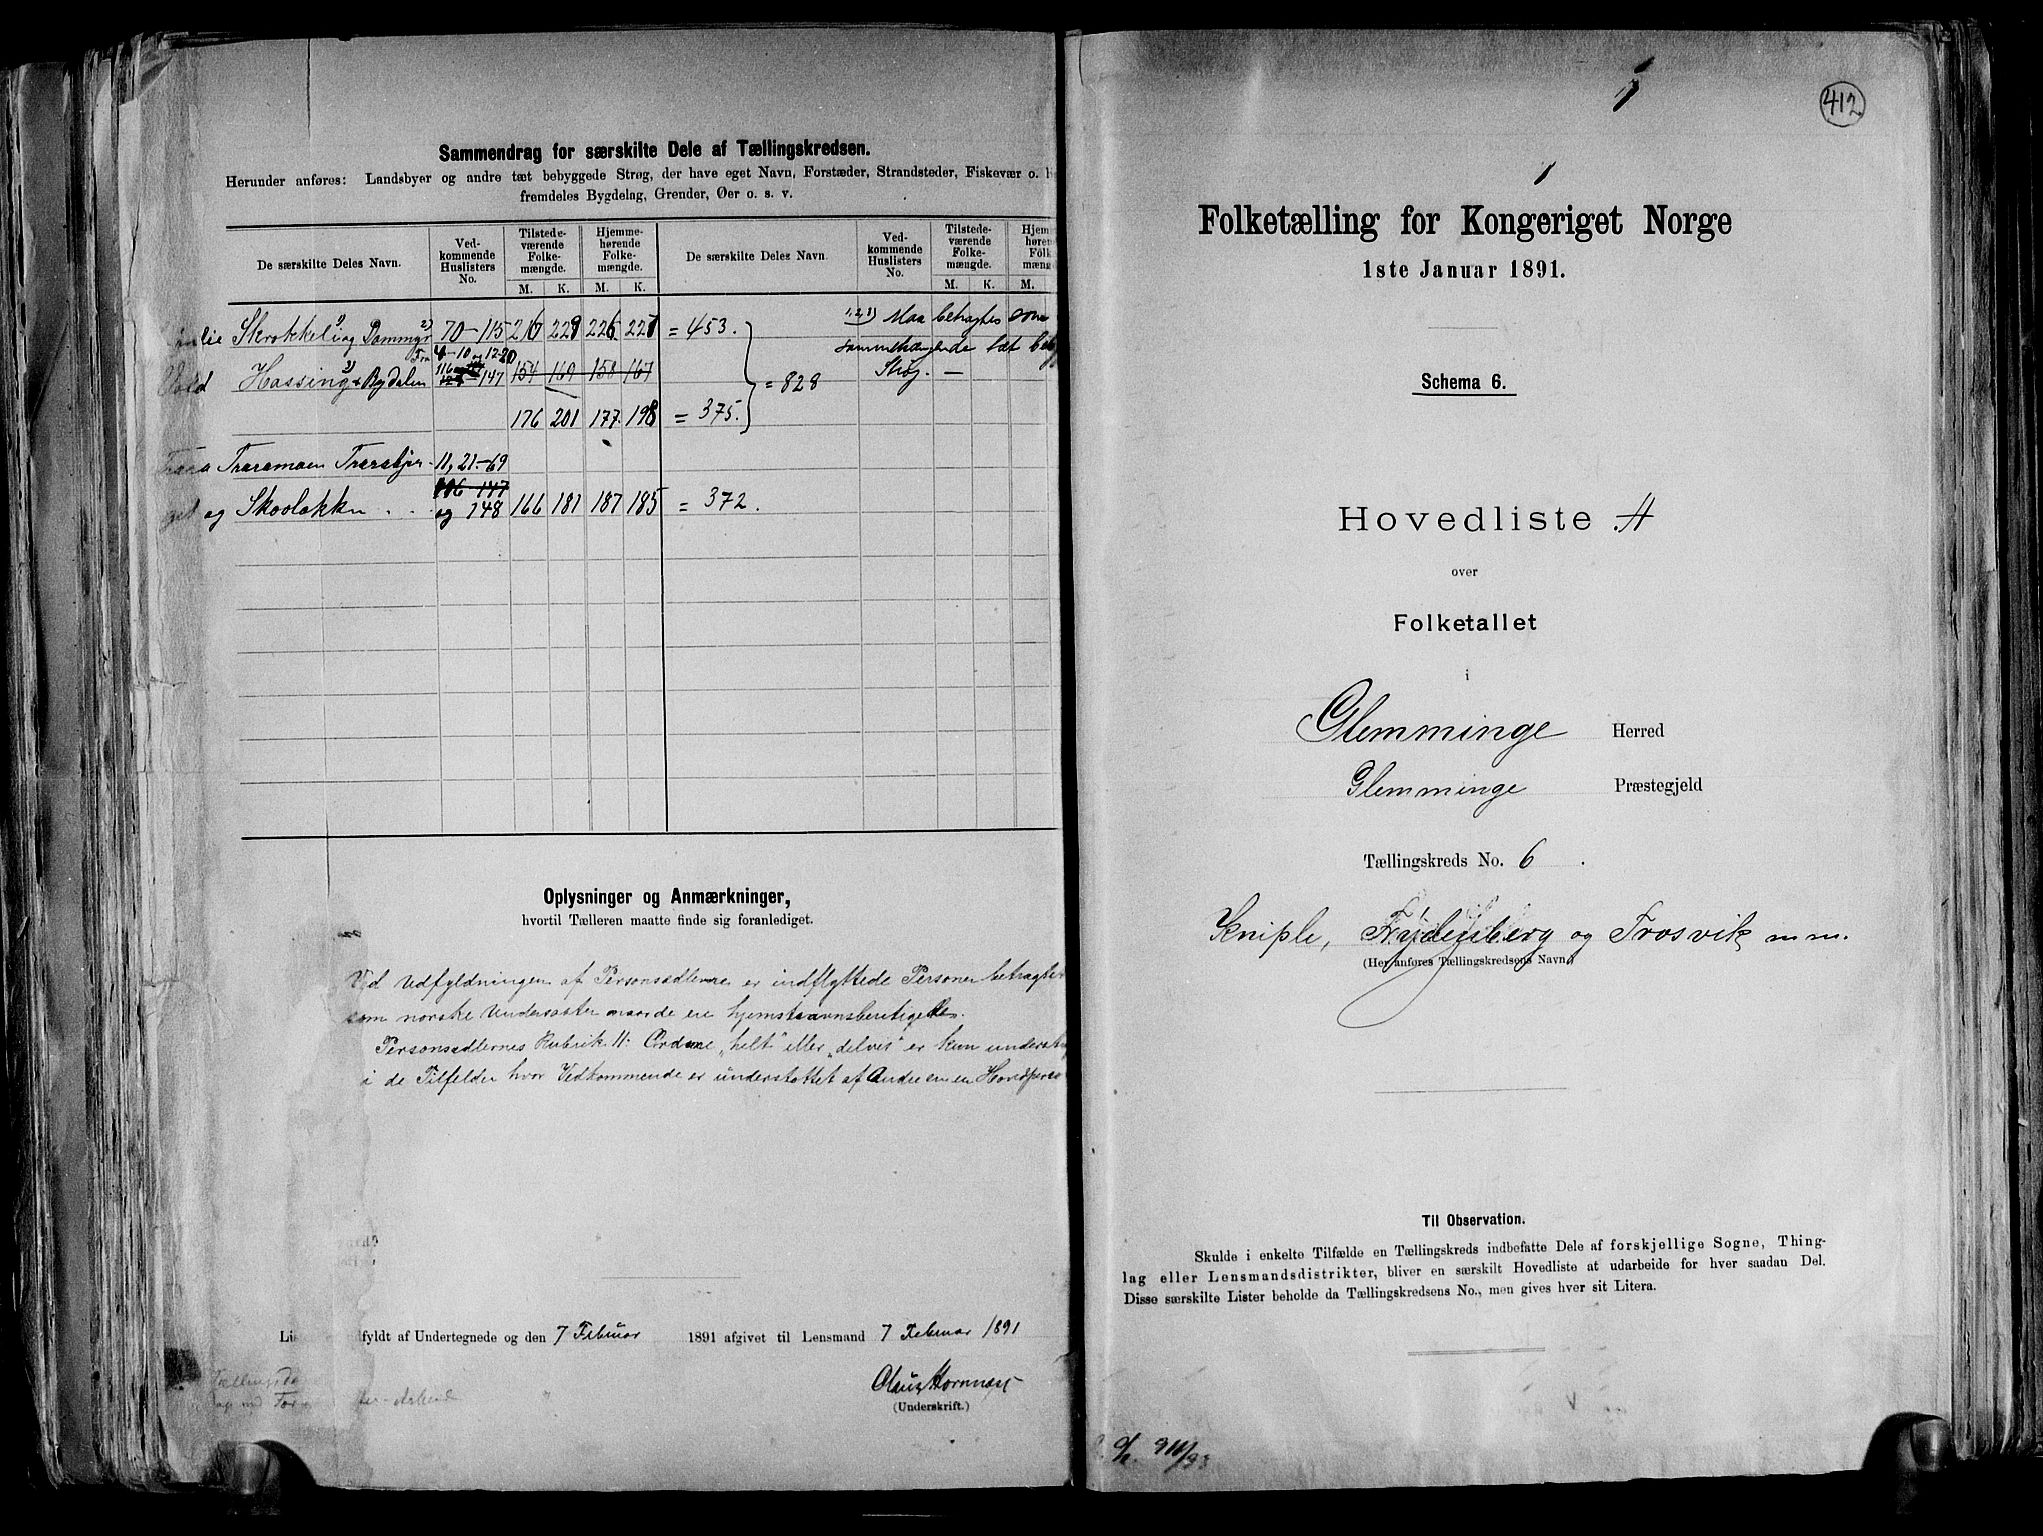 Sammendrag for særskilte Dele af Tællingskredsen.
Herunder anføres: Landsbyer og andre tæt bebyggede Strøg, der have eget Navn, Forstæder, Strandsteder, Fiskevær o.
fremdeles Bygdelag, Grender, Øer o. s. v.
De særskilte Deles Navn. Ved-kommende Huslisters No. Tilstede-værende Folke-mængde. Hjemme-hørende Folke-mængde. De særskilte Deles Navn. Ved-kommende Huslisters No. Tilstede-værende Folke-mængde.
M. K. M. K. M. K. M.
Skrokkeli og Dammyr 70-115 216 229 226 227 = 453. 1, 2, 3) Maa betragtes som
4-10 og 12-20 sammenhængende tæt
Hassing og Bydalen 116-147 154 169 158 167 = 828 Strøg. —
176 201 177 198 = 375.
Traramoen Trarabjer- 11, 21-69
116-147
og Skovløkken . . og 148 166 181 187 185 = 372.
Oplysninger og Anmærkninger,
hvortil Tælleren maatte finde sig foranlediget.
Ved Udfyldningen af Personsedlerne er indflyttede Personer
som norske Undersaatter naar de ere hjemstavnsberettigede.
Personsedlernes Rubrik 11: Ordene „helt" eller „delvis" er kun
i de Tilfælder hvor Vedkommende er understøttet af Andre en en
fyldt af Undertegnede og den 7 Februar 1891 afgivet til Lensmand 7 Februar 1891
Claus Hornnæss
(Underskrift.)
412
Folketælling for Kongeriget Norge
1ste Januar 1891.
Schema 6.
Hovedliste A
over
Folketallet
i
Glemminge Herred
Glemminge Præstegjeld
Tællingskreds No. 6 .
Kniple, Frydenberg og Trosvik m m.
(Her anføres Tællingskredsens Navn.)
Til Observation.
Skulde i enkelte Tilfælde en Tællingskreds indbefatte Dele af forskjellige Sogne, Thing-
lag eller Lensmandsdistrikter, bliver en særskilt Hovedliste at udarbeide for hver saadan Del.
Disse særskilte Lister beholde da Tællingskredsens No., men gives hver sit Litera.